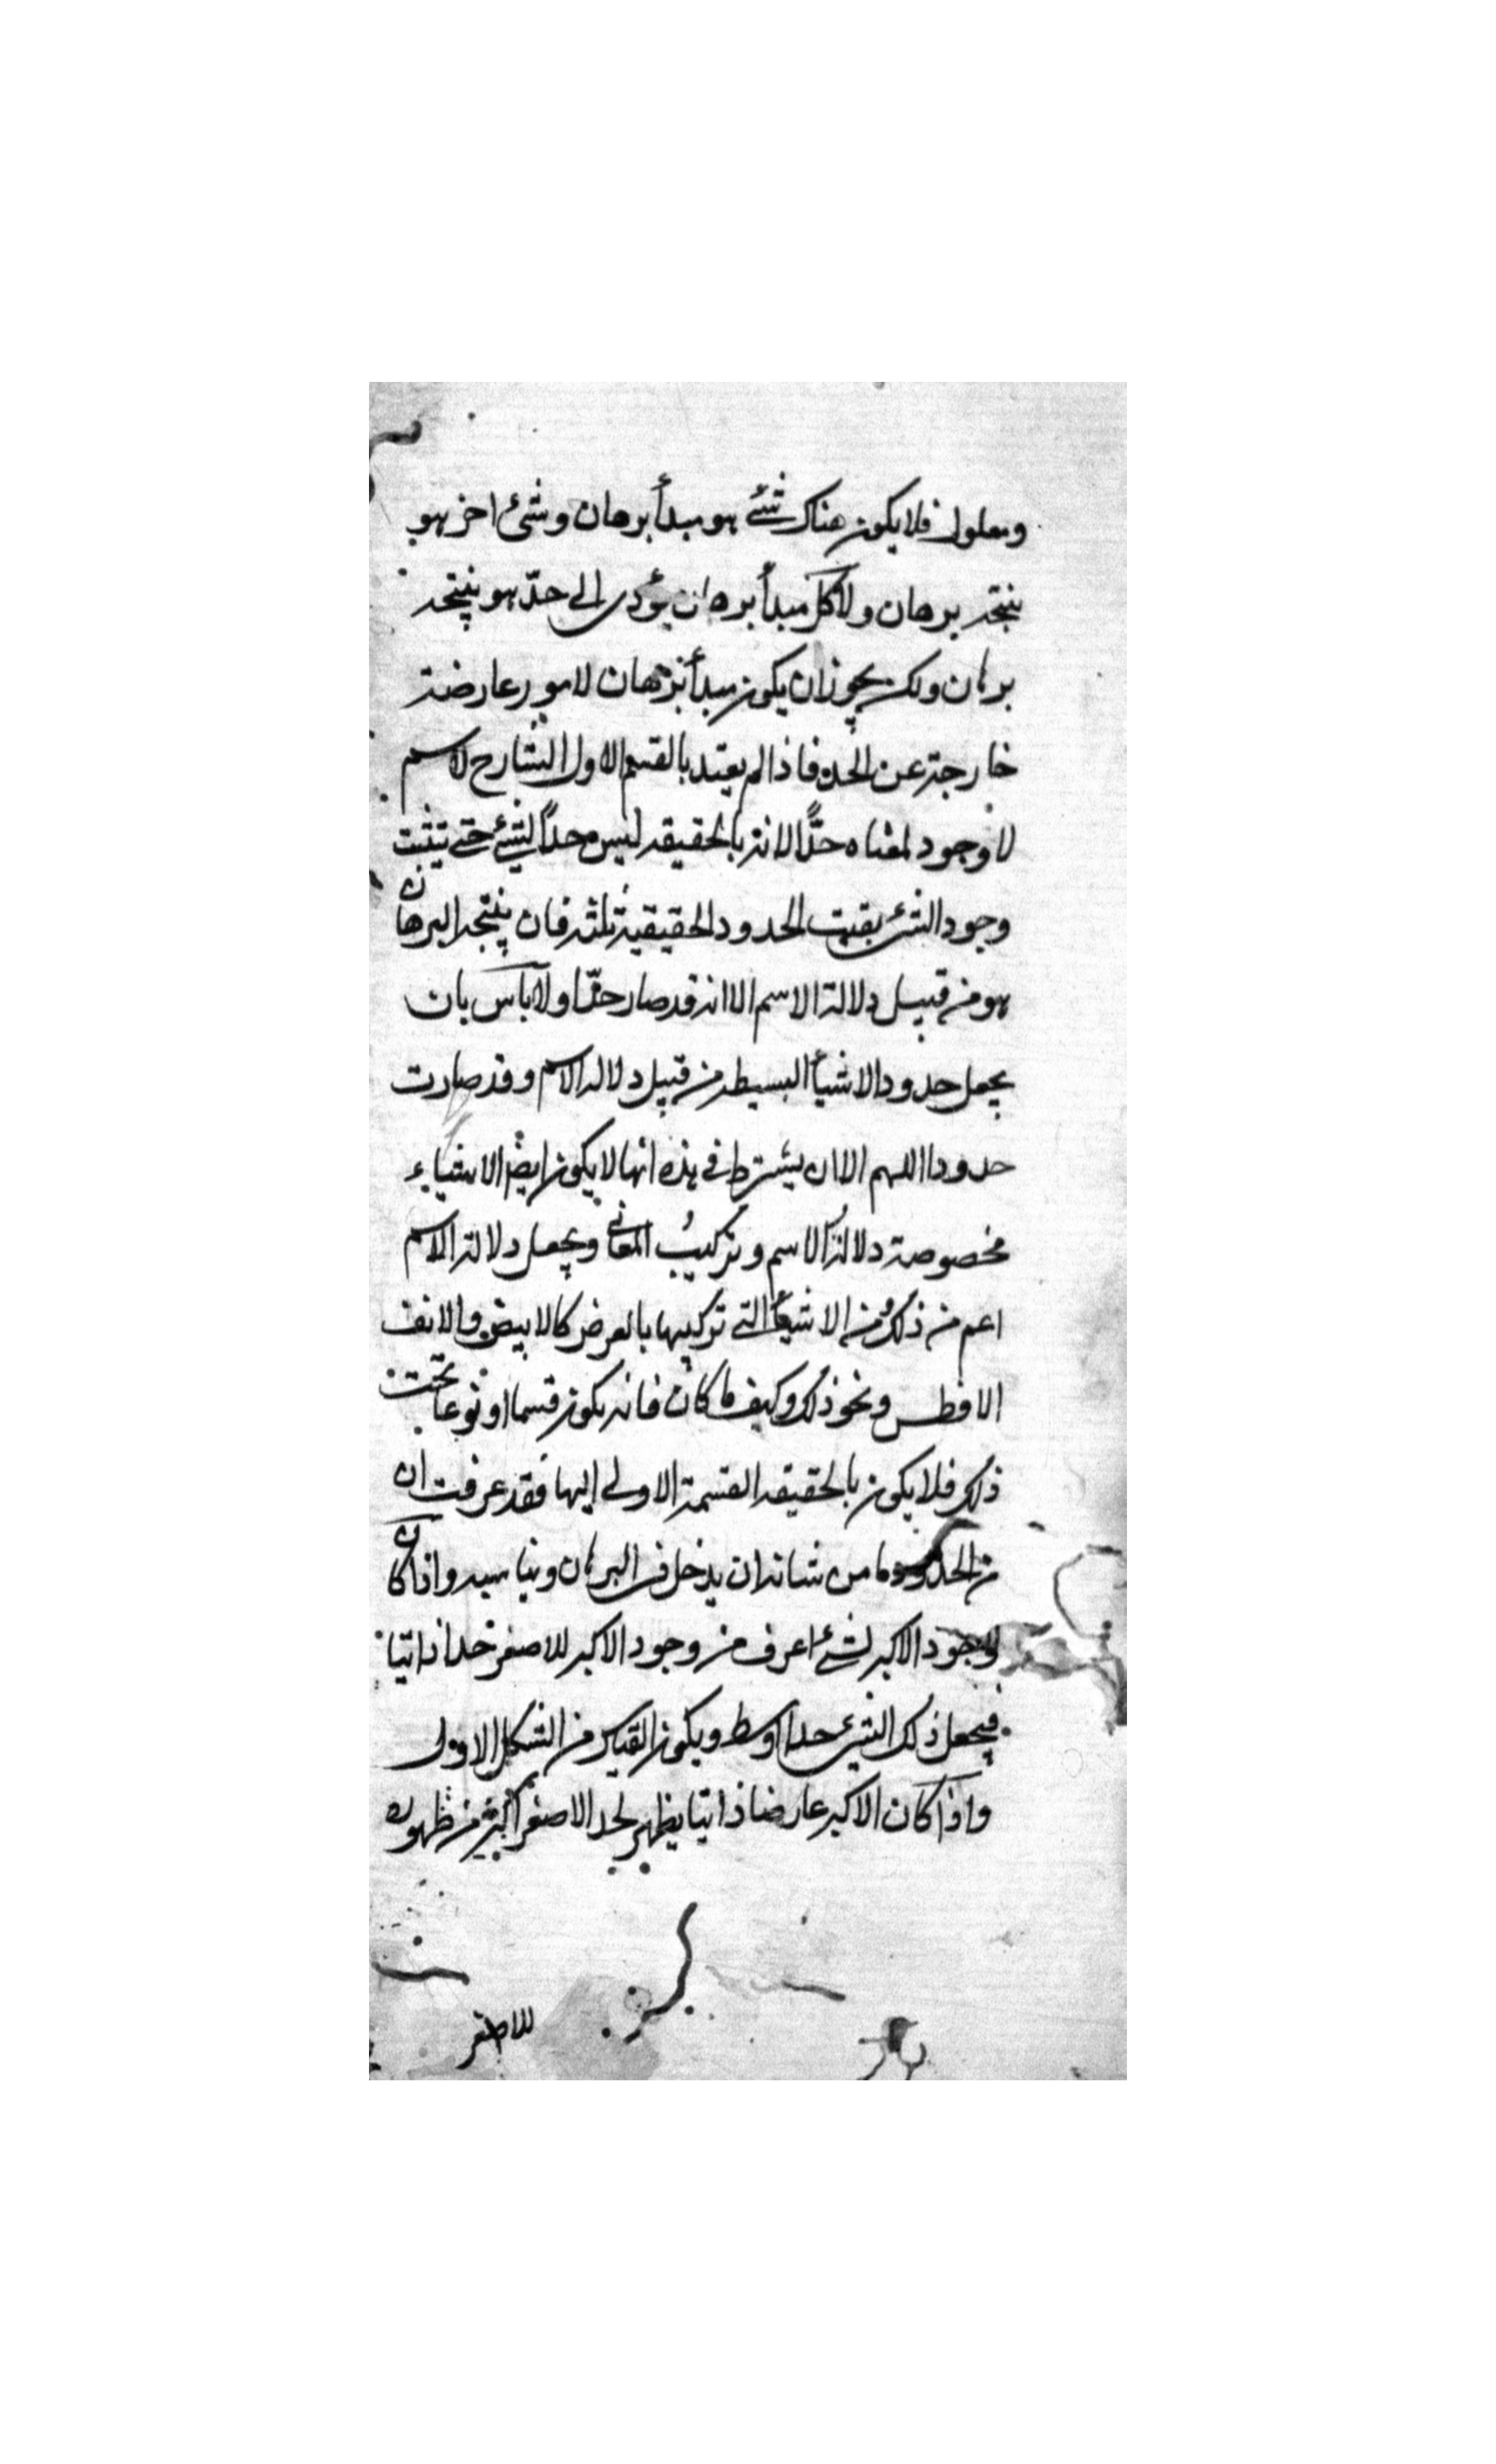 ومعلول فلا يكون هناك شئ هو مبدأ برهان وشئ اخر هو
نتيجة برهان ولا كل مبدأ برهان يؤدى الى حدّ هو نتيجة
برهان ولكن يجوز ان يكون مبدأ برهان لامور عارضة
خارجة عن الحد فاذا لم يعتد بالقسم الاول الشارح لاسم
لا وجود لمعناه حدًّا لانه بالحقيقه ليس حداً لشئ حتى يثبت
وجود الشئ بقيت الحدود الحقيقية ثلثة فان نتيجة البرهان
هو من قبيل دلالة الاسم الا انه قد صار حدّا ولا بأس بان
يجعل حدود الاشيأ البسيطه من قبيل دلاله الاسم وقد صارت
حدودا اللهم الا ان يشترط فى هذه انها لا يكون ايضا الاشياء
مخصوصة دلالة الاسم وتركيبُ المعانى ويجعل دلالة الاسم
اعم من ذلك من الاشيأ التى تركيبها بالعرض كالابيض والانف
الافطس ونحو ذلك وكيف ما كان فانه يكون قسما او نوعا تحت
ذلك فلا يكون بالحقيقه القسمة الاولى اليها فقد عرفت ان
من الحدود ما من شانه ان يدخل فى البرهان ويناسبه واذا كان
لوجود الاكبر لشئ اعرف من وجود الاكبر للاصغر حدا ذاتيا
فيجعل ذلك الشئ حدا اوسط ويكون القياس من الشكل الاول
واذا كان الاكبر عارضا ذاتيا يظهر لحد الاصغر اكثر من ظهوره
للاصغر